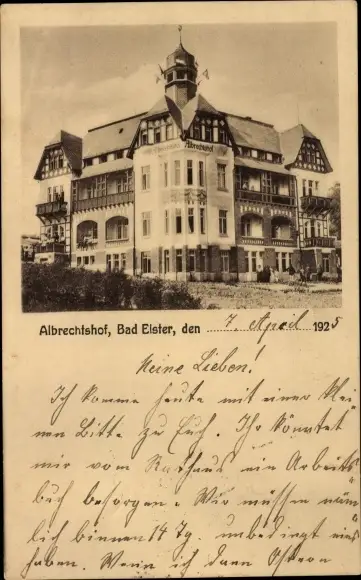 Albrechtshof
Albrechtshof, Bad Elster, den 7 April 1925
Meine Lieben!
Ich komme heute mit einer klei
nen Bitte zu Euch. Ihr könntet
mir vom Rathaus ein Arbeits
buch besorgen. Wir müssen näm
lich binnen 14 Tg. unbedingt eins
haben. Wenn ich dann Ostern